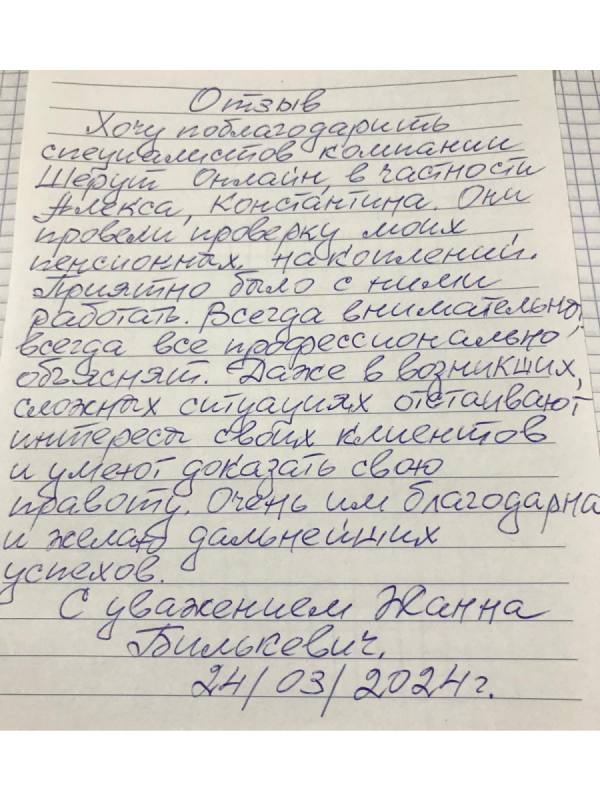 Отзыв
Хочу поблагодарить
специалистов компании
Шерут Онлайн, в частности
Алекса, Константина. Они
провели проверку моих
пенсионных накоплений.
Приятно было с ними
работать. Всегда внимательно,
всегда все профессионально
объяснят. Даже в возникших,
сложных ситуациях отстаивают
интересы своих клиентов
и умеют доказать свою
правоту. Очень им благодарна
и желаю дальнейших
успехов.
С уважением Жанна
Билькевич.
24/03/2024г.